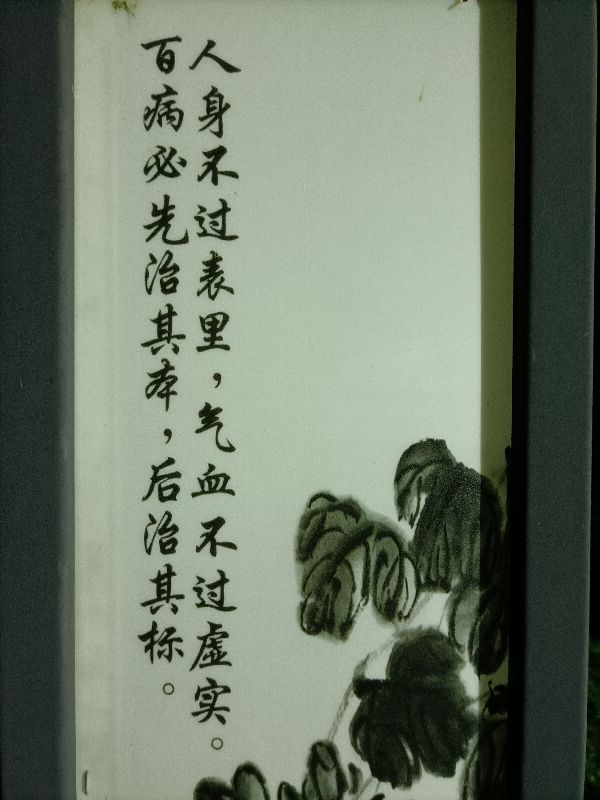 人身不过表里，气血不过虚实。
百病必先治其本，后治其标。